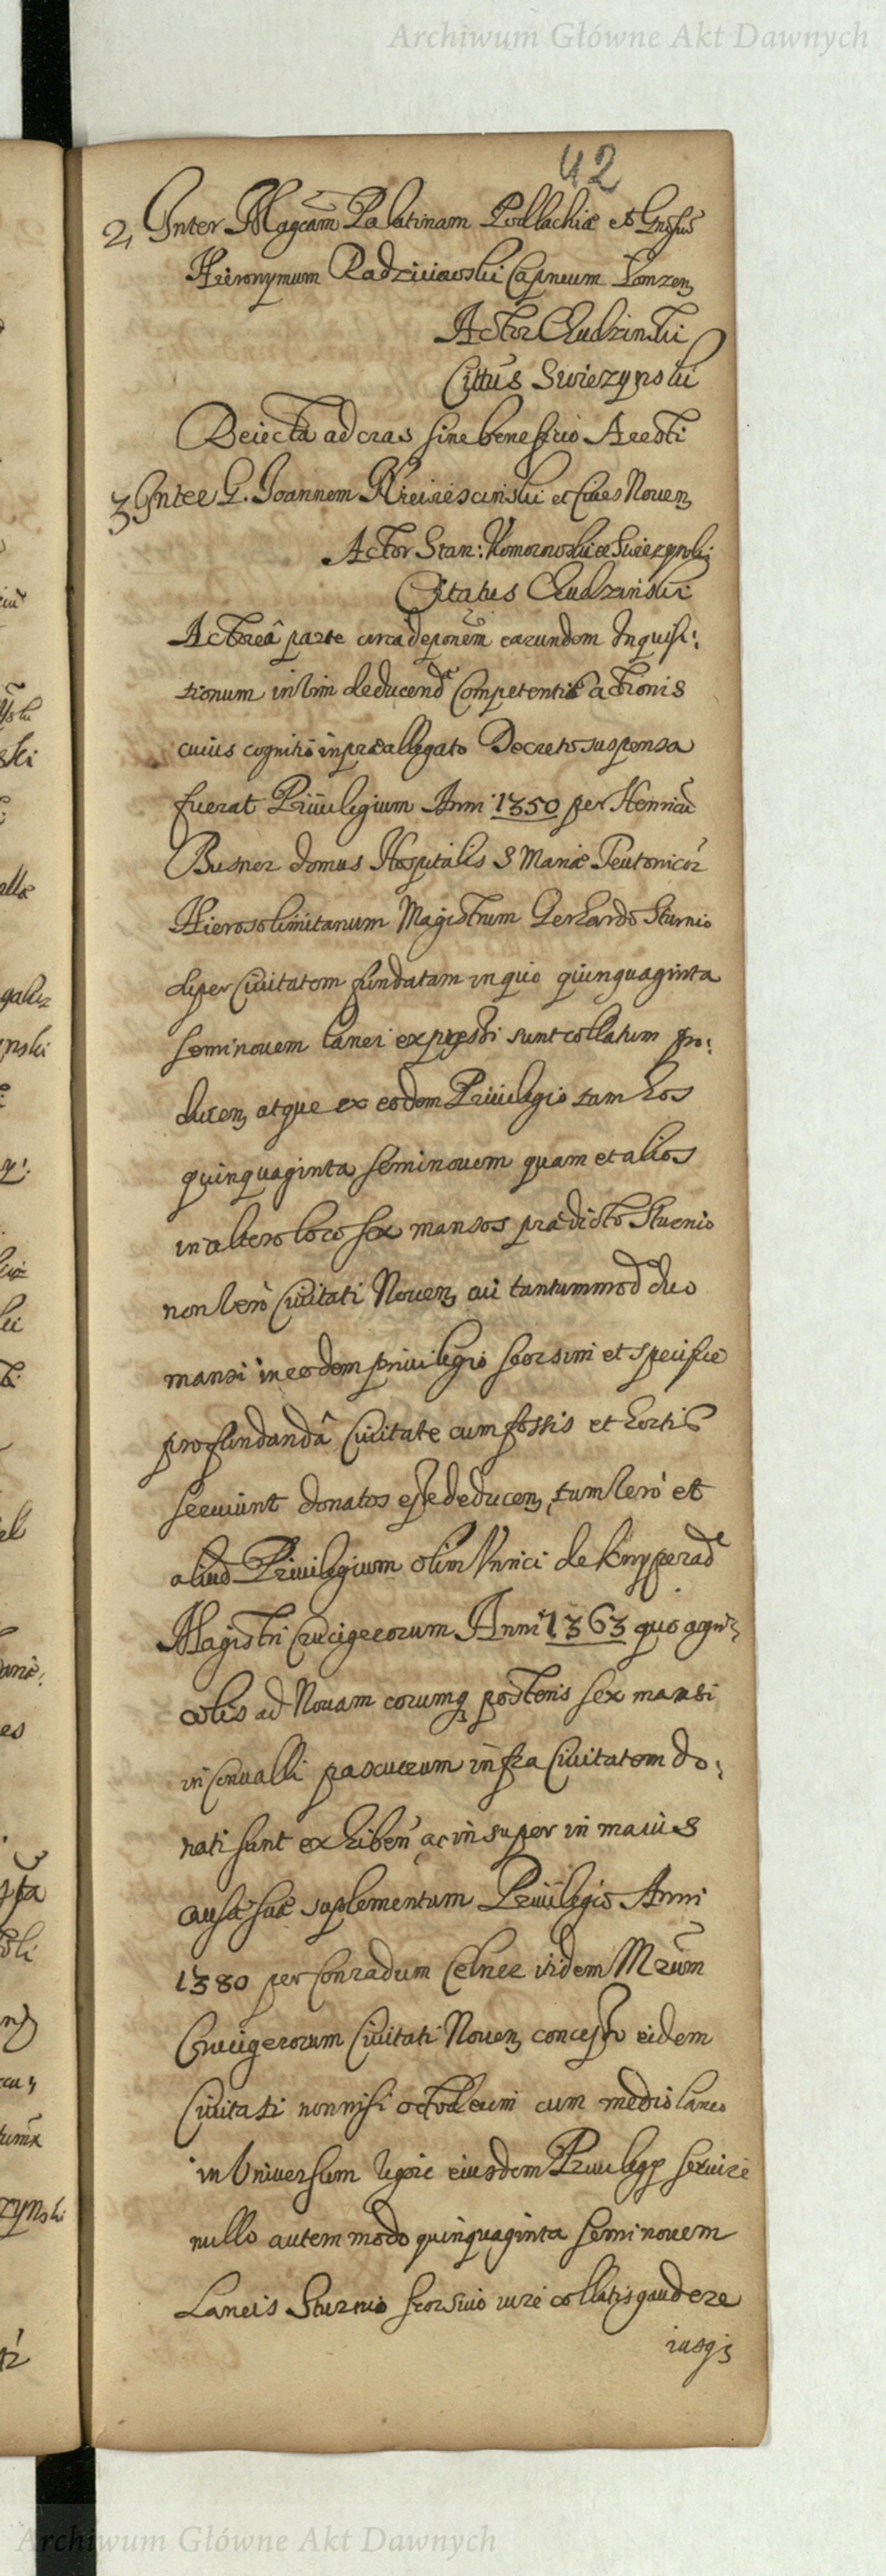 Archiwum Główne Akt Dawnych
42
2, Inter Magcam Palatinam Podlachiæ et
Hieronymum Radzieiowski Capneum Lomzen,
Actor Chudzinski
Cittus Swiezynski
Reiecta ad cras sine beneficio Areesti
3 Inter G. Joannem et Ciues Nouen,
Actor Stan: Komorowski et Swiezynski
Citatus Chudzinski
Actoreâ parte circa deponem earundem Inquisi:
tionum in vim deducendæ Competentis actionis
cuius cognitio in præallegato Decreto suspensa
fuerat Priuilegium Anni 1350 per Henricu
Busner domus Hospitalis S Mariæ Teutonicor
Hierosolimitanum Magistrum Gerhardo Sturmio
super Ciuitatem fundatam in quo quinquaginta
seminouem lanei expressi sunt collatum pro:
ducen, atque ex eodem Priuilegio tam hos
quinquaginta seminouem quam et alios
in altero loco sex mansos prædicto Sturnio
non vero Ciuitati Nouen, cui tantummodo duo
mansi in eodem priuilegio seorsim et specifice
pro fundandâ Ciuitate cum fossis et hortis
seruiunt donatos esse deducen, tum vero et
aliud Priuilegium olim Vnrici de Knyperade
Magistri Crucigerorum Anni 1363 quo agri
colis ad Nouam eorumq posteris sex mansi
in Conualli pascuorum infra Ciuitatem do:
nati sunt exhiben ac insuper in maius
causæ suæ suplementum Priuilegio Anni
1380 per Conradum Celner itidem Mrum
Crucigerorum Ciuitati Nouen, concesso eidem
Ciuitati nonnisi octodecim cum medio laneo
in Vniuersum eiusdem Priuilegy seruire
nullo autem modo quinquaginta seminouem
Laneis Sturnio seorsiuo iure collatis gaudere
iusqz
Archiwum Główne Akt Dawnych